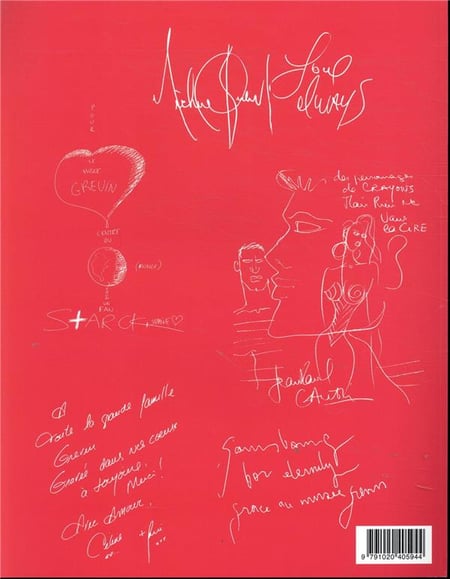 Love
always
POUR
LE MUSÉE
GREVIN
CENTRE DU
(MONDE)
UN FAN
STARCK
des personnages
de CRAYONS
Mais Rien Ne
Vaut
la CIRE
Jean Paul
A
toute la grande famille
Grevin
Gravée dans nos coeurs
à toujours.
Merci!
Avec Amour,
Céline + René
Gainsbourg
for eternity
grace au musée grevin
9 791020 405944